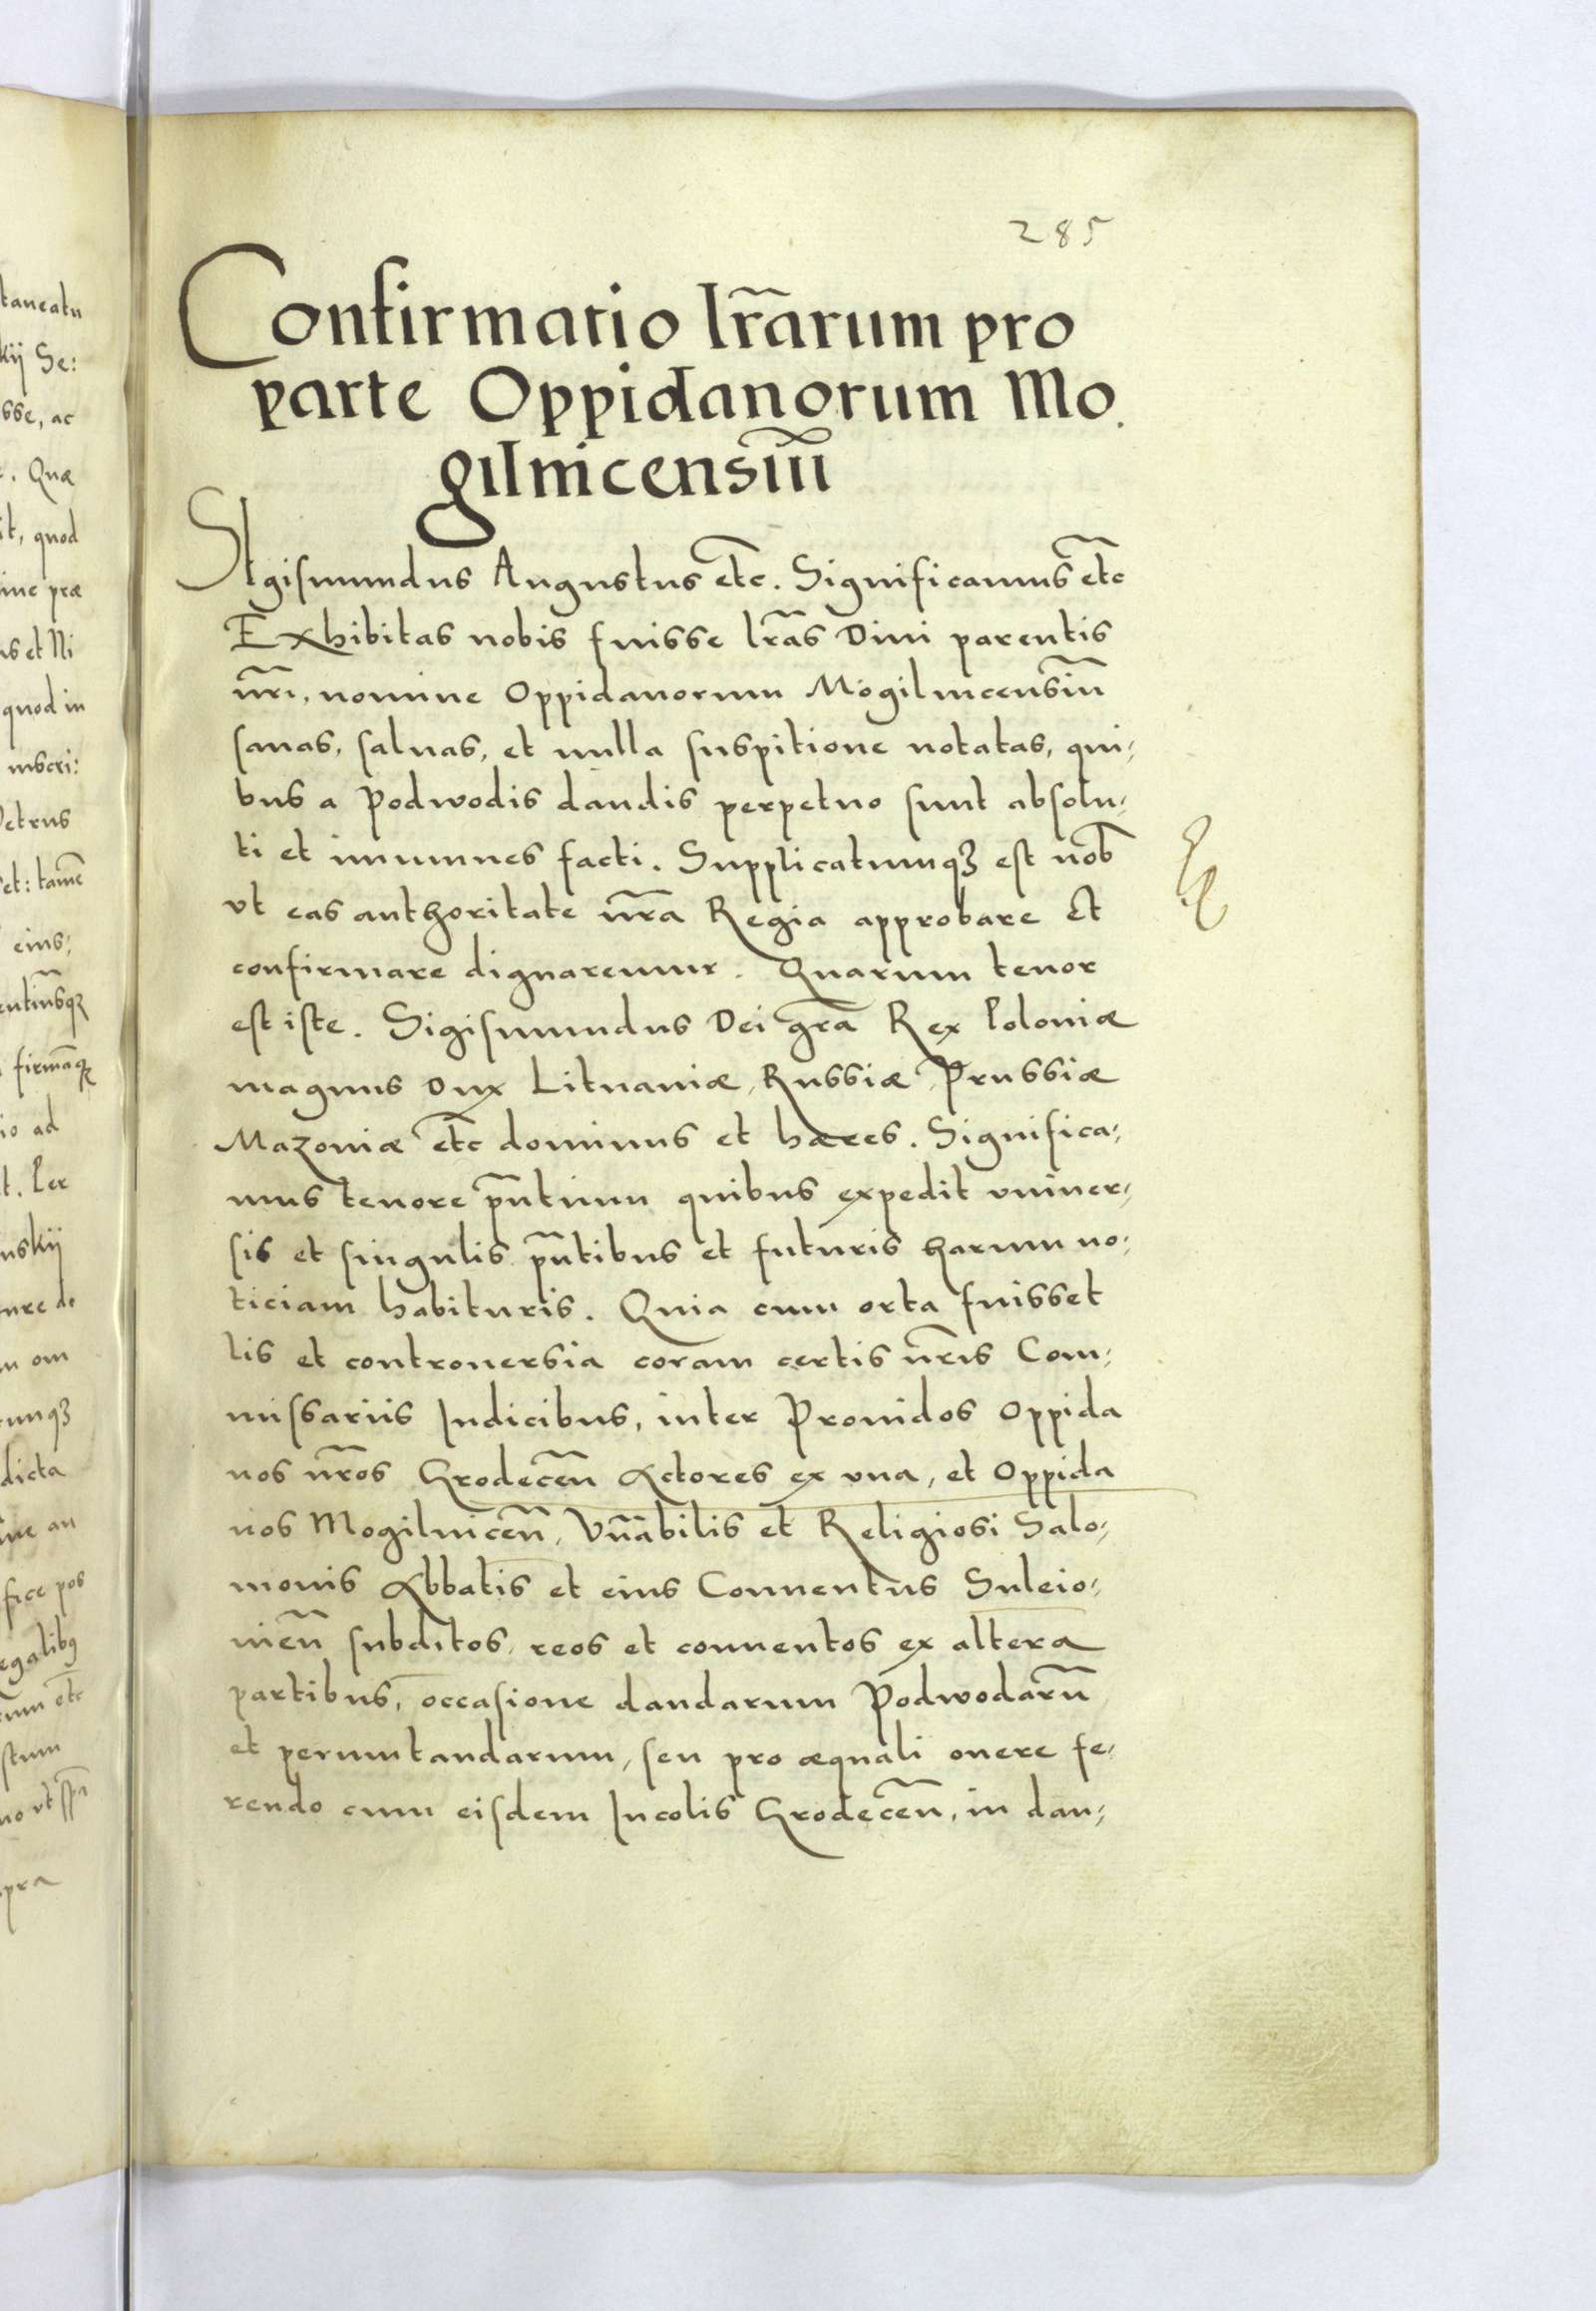 285
Confirmatio lr̃arum pro
parte Oppidanorum Mo.
gilnicensiũ
SIgismundus Augustus etc̃. Significamus etc̃
Exhibitas nobis fuisse lr̃as Diui parentis
nr̃i, nomine Oppidanorum Mogilnicensiũ
sanas, saluas, et nulla suspitione notatas, qui,
bus a Podwodis dandis perpetuo sunt absolu,
ti et immunes facti. Supplicatumqꝫ est nob̃
vt eas authoritate nr̃a Regia approbare et
confirmare dignaremur. Quarum tenor
est iste. Sigismundus Dei gr̃a Rex Poloniæ
magnus Dux Lituaniæ, Russiæ Prussiæ
Mazouiæ etc̃ dominus et hæres. Significa,
mus tenore pñtium quibus expedit vniuer,
sis et singulis pñtibus et futuris harum no,
ticiam habituris. Quia cum orta fuisset
lis et controuersia coram certis nr̃is Com,
missariis Iudicibus, inter Prouidos Oppida
nos nr̃os Grodeceñ Actores ex vna, et Oppida
nos Mogilniceñ, Vñabilis et Religiosi Salo,
monis Abbatis et eius Conuentus Suleio,
uieñ subditos, reos et conuentos ex altera
partibus, occasione dandarum Podwodarũ
et permutandarum, seu pro æquali onere fe,
rendo cum eisdem Incolis Grodeceñ, in dan,
taneatu
kij Se:
sse, ac
. Quæ
it, quod
ine præ
us et Ni
quod in
inscri:
Petrus
et: tamẽ
eius,
entiũsqꝫ
firmãqꝫ
io ad
t. Per
nskij
nre de
m om
cumqꝫ
dicta
ine an
fice pos
egalibꝰ
rum etc̃
stum
no vt
pra